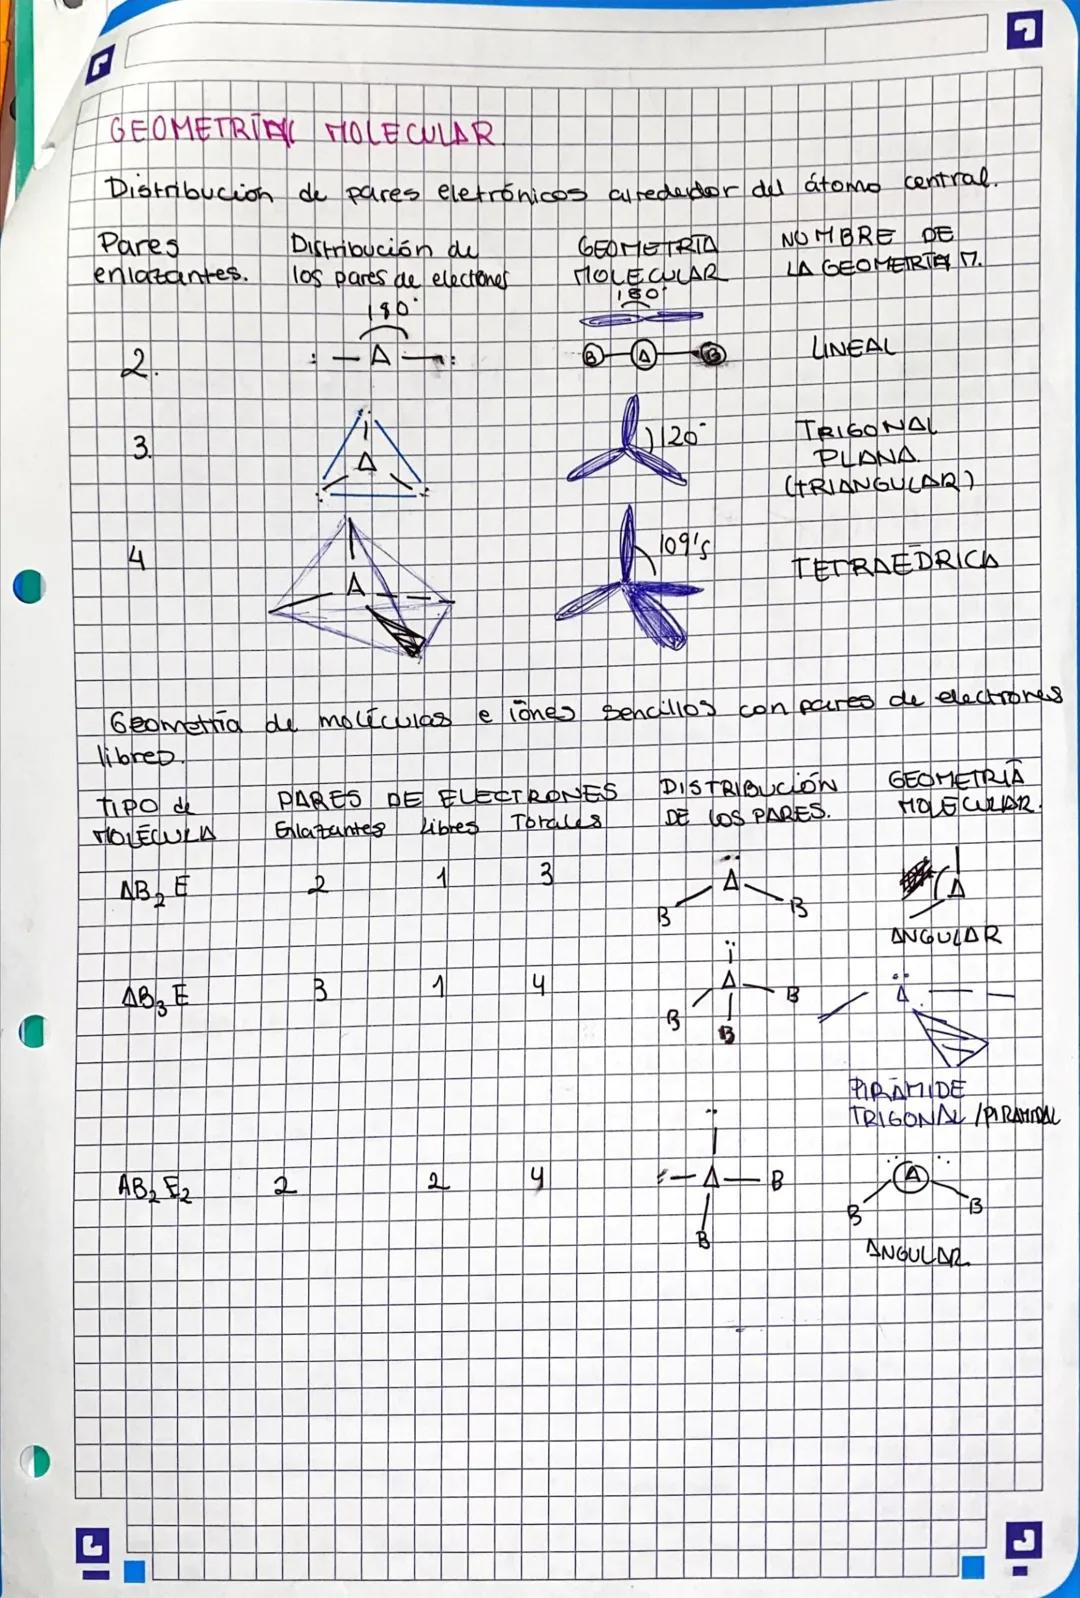 GEOMETRÍA MOLECULAR
Distribución de pares eletrónicos alrededor del átomo central.
Pares enlazantes.
Distribución de los pares de electrones
GEOMETRÍA MOLECULAR
NOMBRE DE LA GEOMETRÍA M.
2.
180°
: — A — :
180°
B A B
LINEAL
3.
A
120°
TRIGONAL
PLANA
(TRIANGULAR)
4
A
109'5
TETRAÉDRICA
Geometría de moléculas e iones sencillos con pares de electrones
libres.
TIPO de MOLÉCULA
PARES DE ELECTRONES
Enlazantes Libres Totales
DISTRIBUCIÓN DE LOS PARES.
GEOMETRÍA MOLECULAR.
AB₂E 2 1 3
A
B B
A
ANGULAR
AB₃E 3 1 4
A
B B B
A
PIRÁMIDE
TRIGONAL / PIRAMIDAL
AB₂E₂ 2 2 4
A — B
B
A
B B
ANGULAR